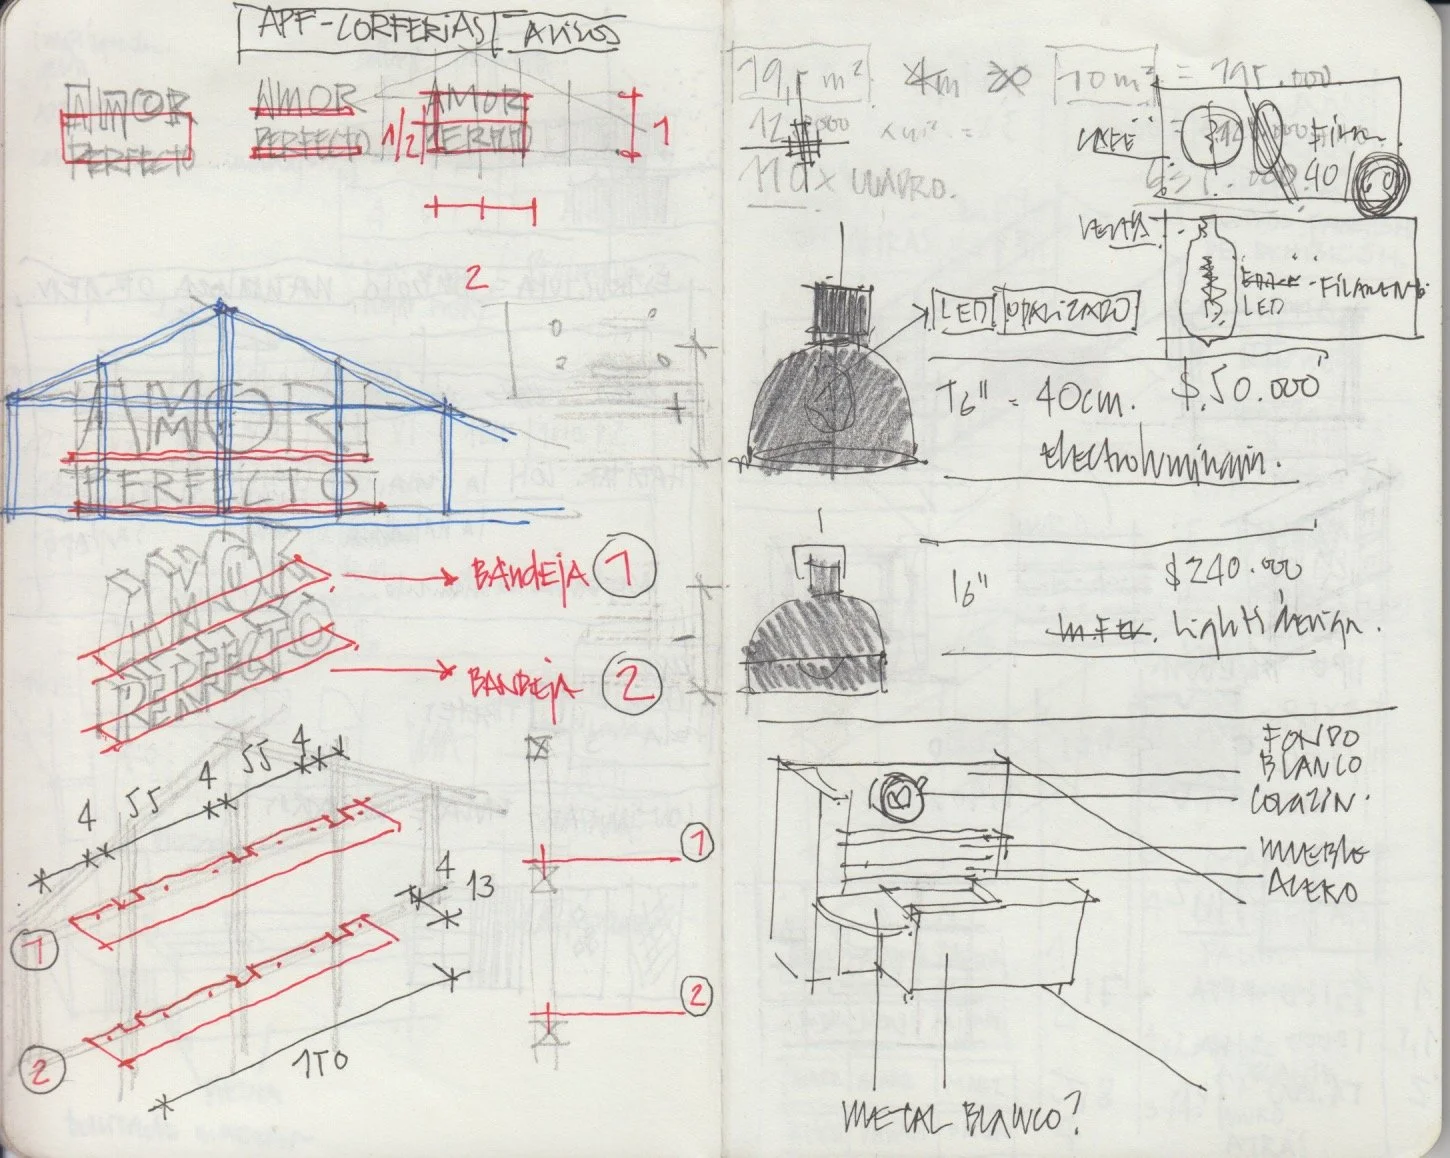 APF-CORFERIAS AVISOS
AMOR
PERFECTO
AMOR
PERFECTO
1/2
AMOR
1
2
AMOR
PERFECTO
AMOR
PERFECTO
BANDEJA 1
BANDEJA 2
4 55 4 55 4
4 13
1
2
170
1
2
19,5 m² 4m 10 m² = 195.000
110 x CUADRO.
CAFÉ
40
LED OPALIZADO
LED - FILAMENTO
16" = 40cm. $50.000
electroluminaria.
16" $240.000
Lights design.
FONDO
BLANCO
CORAZÓN.
MUEBLE
ACERO
METAL BLANCO?